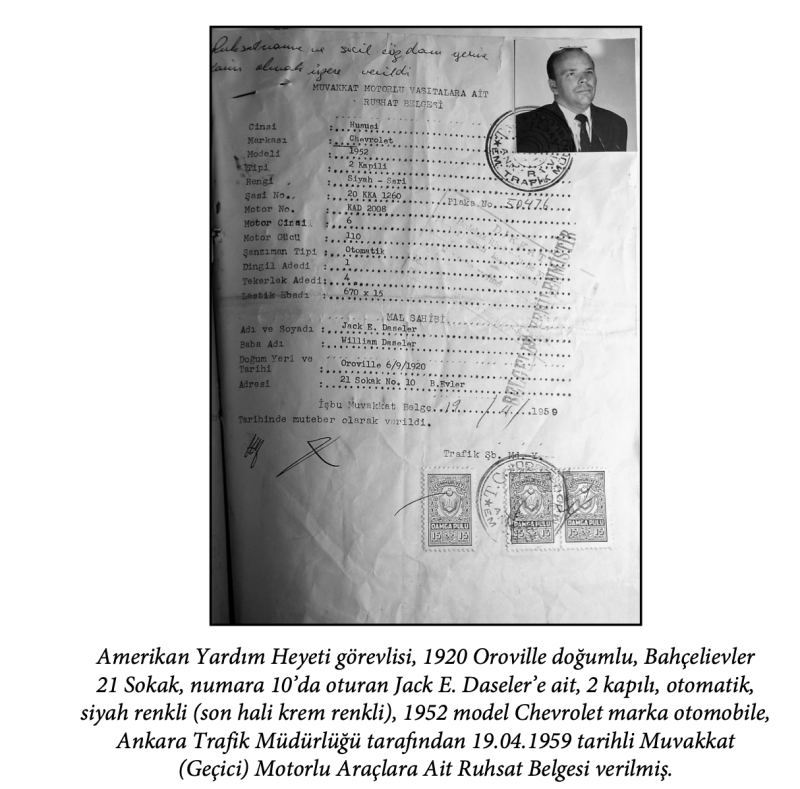 Ruhsatname ve sicil cüzdanı yerine
kaim olmak üzere verildi
MUVAKKAT MOTORLU VASITALARA AİT
RUSHAT BELGESİ
Cinsi : Hususi
Markası : Chevrolet
Modeli : 1952
Tipi : 2 Kapili
Rengi : Siyah - Sari
Şasi No. : 20 KKA 1260 Plaka No. 50476
Motor No. : KAD 2008
Motor Cinsi : 6
Motor Gücü : 110
Şanzıman Tipi : Otomatik
Dingil Adedi : 1
Tekerlek Adedi: 4
Lastik Ebadı : 670 x 15
MAL SAHİBİ
Adı ve Soyadı : Jack E. Daseler
Baba Adı : William Daseler
Doğum Yeri ve
Tarihi : Oroville 6/9/1920
Adresi : 21 Sokak No. 10 B.Evler
İşbu Muvakkat Belge 19 / 4 / 1959
Tarihinde muteber olarak verildi.
Trafik Şb. Md. Y.
DAMGA PULU
15 15
DAMGA PULU
15 15
DAMGA PULU
15 15
Amerikan Yardım Heyeti görevlisi, 1920 Oroville doğumlu, Bahçelievler
21 Sokak, numara 10’da oturan Jack E. Daseler’e ait, 2 kapılı, otomatik,
siyah renkli (son hali krem renkli), 1952 model Chevrolet marka otomobile,
Ankara Trafik Müdürlüğü tarafından 19.04.1959 tarihli Muvakkat
(Geçici) Motorlu Araçlara Ait Ruhsat Belgesi verilmiş.